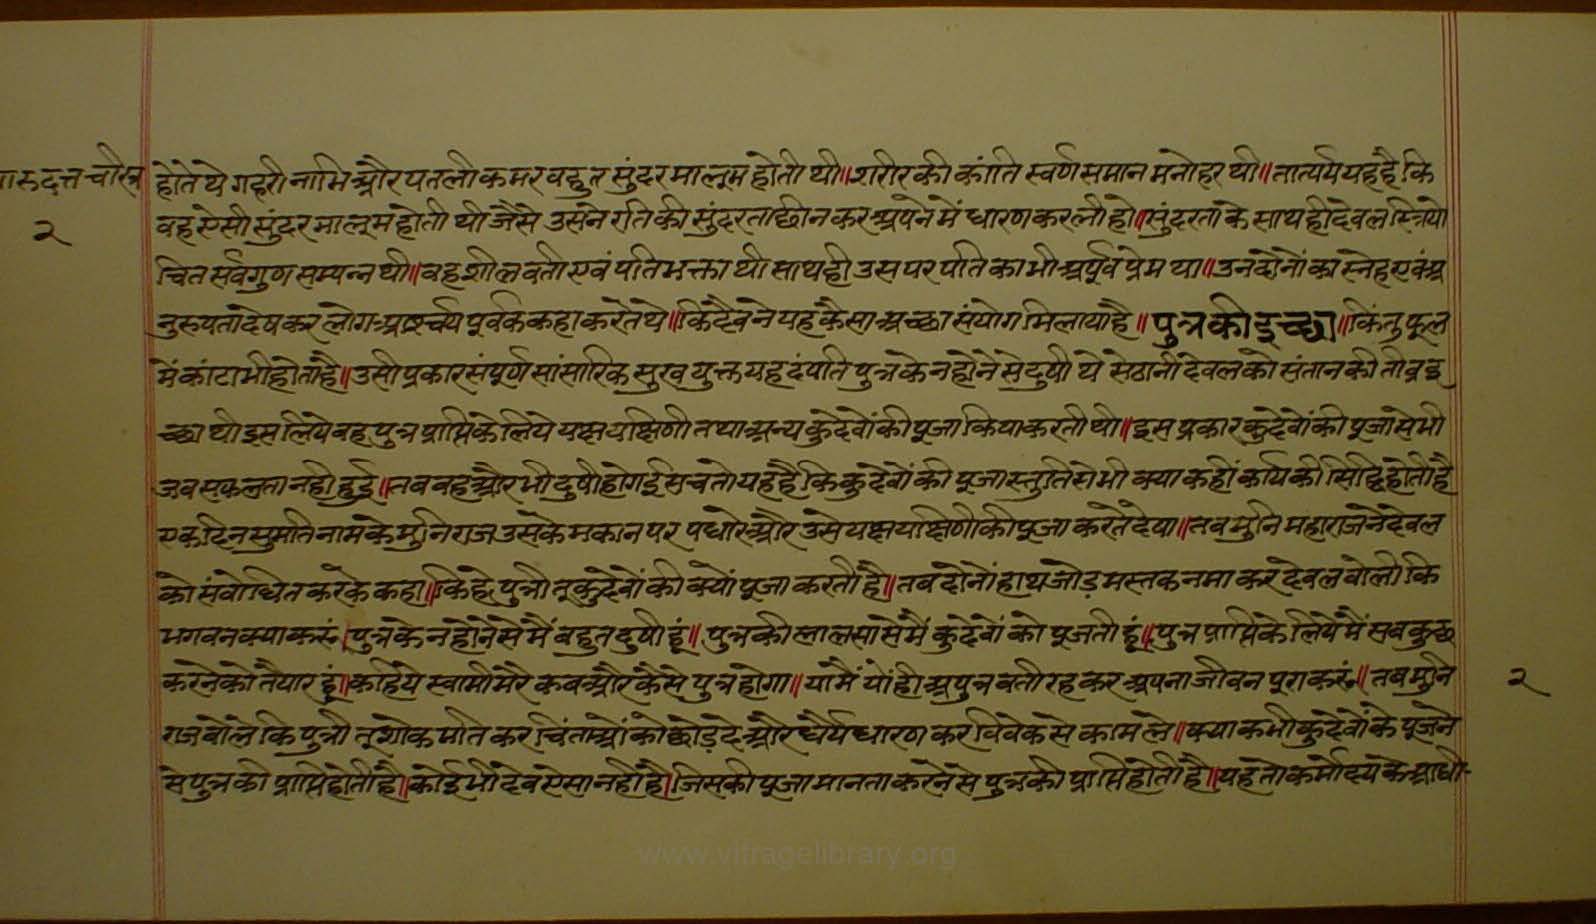 चारुदत्त चरित्र
२
होते थे गहरी नाभि और पतली कमर वहुत सुंदर मालूम होती थी॥ शरीर की कांति स्वर्ण समान मनोहर थी॥ तात्पर्य यह है कि
वह ऐसी सुंदर मालूम होती थी जैसे उसने रति की सुंदरता छीन कर अपने में धारण कर ली हो॥ सुंदरता के साथ ही देवल स्त्रियो
चित सर्वगुण सम्पन्न थी॥ वह शीलवती एवं पतिभक्ता थी साथ ही उस पर पति का भी अपूर्व प्रेम था॥ उन दोनों का स्नेह एवं अ
नुरुपता देष कर लोग आर्श्चय पूर्वक कहा करते थे॥ कि दैव ने यह कैसा अच्छा संयोग मिलाया है॥ पुत्र की इच्छा॥ किंतु फूल
में कांटा भी होता है॥ उसी प्रकार संपूर्ण सांसारिक सुख युक्त यह दंपति पुत्र के न होने से दुषी थे सेठानी देवल को संतान की तीव्र इ
च्छा थी इस लिये वह पुत्र प्राप्ति के लिये यक्ष यक्षिणी तथा अन्य कुदेवों की पूजा किया करती थी॥ इस प्रकार कुदेवों की पूजा से भी
जव सफलता नही हुई॥ तव वह और भी दुषी हो गई सच तो यह है कि कुदेवों की पूजा स्तुति से भी क्या कहीं कार्य की सिद्धि होती है
एक दिन सुमति नाम के मुनिराज उसके मकान पर पधारे और उसे यक्ष यक्षिणी की पूजा करते देषा॥ तव मुनि महाराज ने देवल
को संवोधित करके कहा॥ कि हे पुत्री तू कुदेवों की क्यों पूजा करती है॥ तव दोनों हाथ जोड़ मस्तक नमा कर देवल वोली कि
भगवन क्या करुं। पुत्र के न होने से मैं बहुत दुषी हूं॥ पुत्र की लालसा से मैं कुदेवों को पूजती हूं॥ पुत्र प्राप्ति के लिये मैं सब कुछ
करने को तैयार हूं॥ कहिये स्वामी मेरे कब और कैसे पुत्र होगा॥ या मैं यों ही अपुत्रवती रह कर अपना जीवन पूरा करुं॥ तब मुनि
राज वोले कि पुत्री तू शोक मति कर चिंताओं को छोड़ दे और धैर्य धारण कर विवेक से काम ले॥ क्या कभी कुदेवों के पूजने
से पुत्र की प्राप्ति होती है। कोई भी देव ऐसा नही है। जिसकी पूजा मानता करने से पुत्र की प्राप्ति होती है॥ यह तो कर्मोदय के आधी-
२
www.vitragelibrary.org